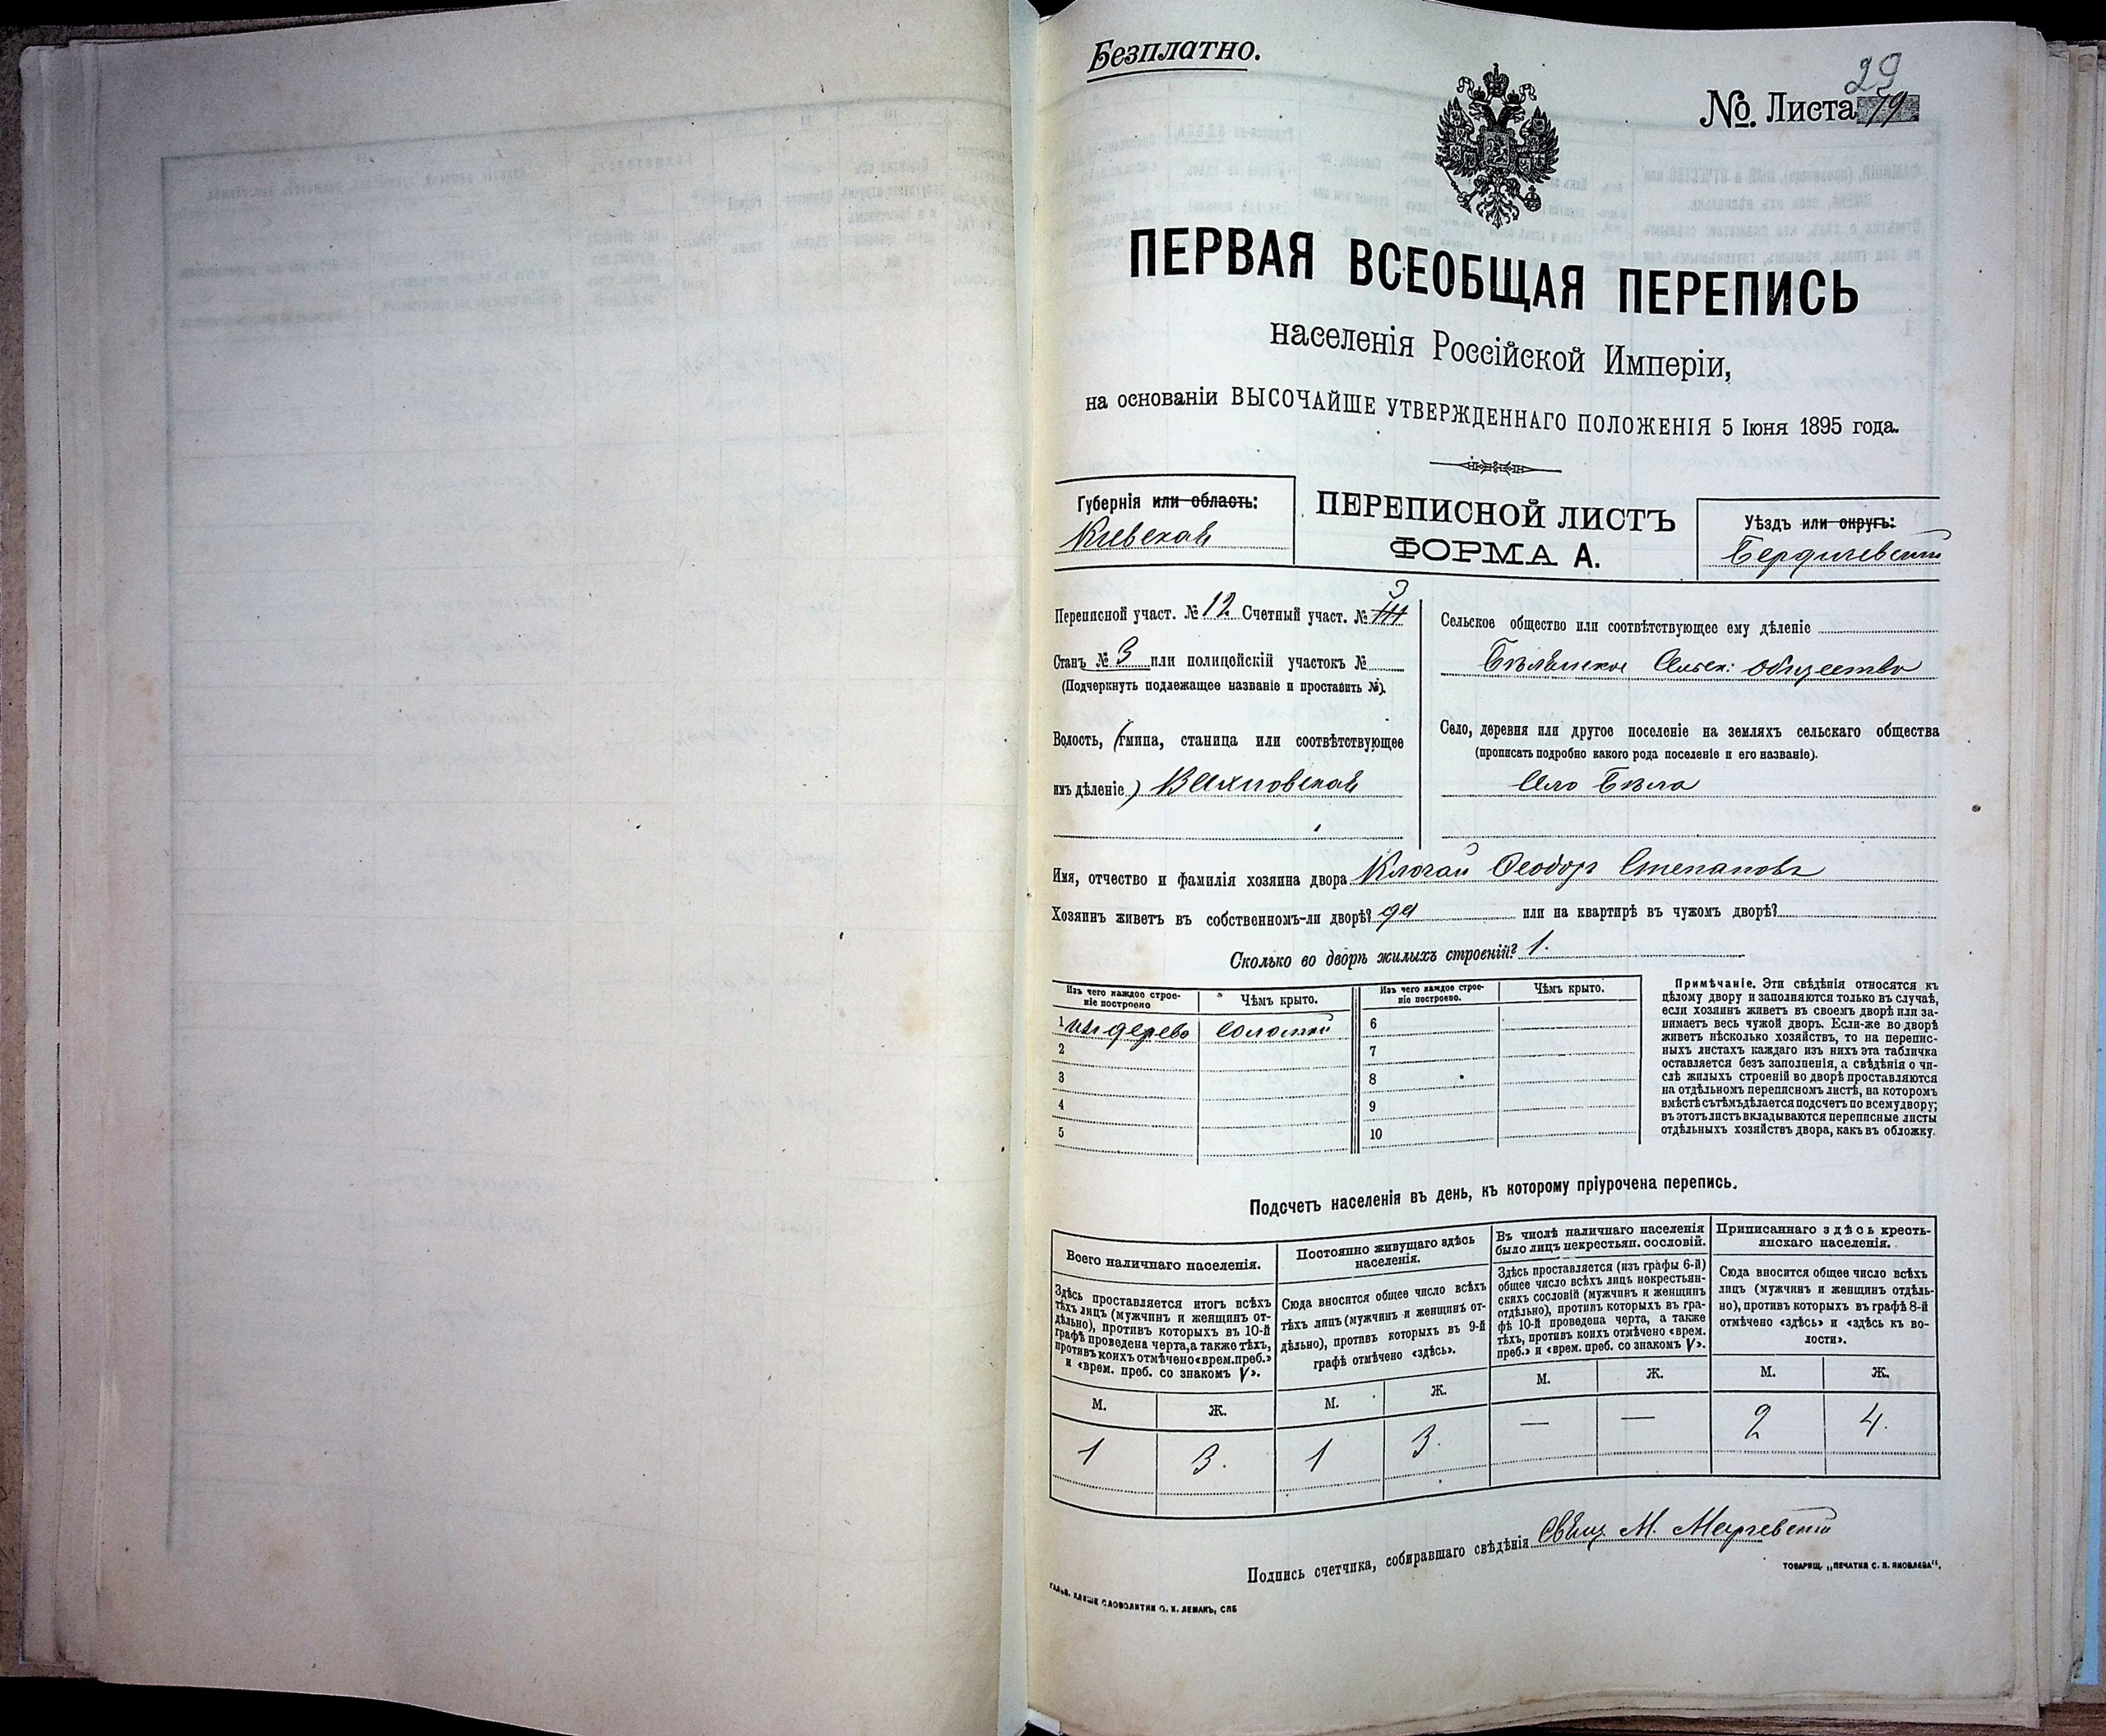 Безплатно.
29
№. Листа 19
ПЕРВАЯ ВСЕОБЩАЯ ПЕРЕПИСЬ
населенія Россійской Имперіи,
на основаніи ВЫСОЧАЙШЕ УТВЕРЖДЕННАГО ПОЛОЖЕНІЯ 5 Іюня 1895 года.
Губернія или область:
Кіевская
ПЕРЕПИСНОЙ ЛИСТЪ
ФОРМА А.
Уѣздъ или округъ:
Бердичевскій
Переписной участ. № 12 Счетный участ. № III 3
Станъ № 3 или полицейскій участокъ №
(Подчеркнуть подлежащее названіе и проставить №).
Волость, (гмина, станица или соотвѣтствующее
имъ дѣленіе) Вахновская
Сельское общество или соотвѣтствующее ему дѣленіе
Сельск: общество
Село, деревня или другое поселеніе на земляхъ сельскаго общества
(прописать подробно какого рода поселеніе и его названіе).
Село Бѣла
Имя, отчество и фамилія хозяина двора Клочай Ѳеодоръ Степановъ
Хозяинъ живетъ въ собственномъ-ли дворѣ? да или на квартирѣ въ чужомъ дворѣ?
Сколько во дворѣ жилыхъ строеній? 1.
Изъ чего каждое строе-
ніе построено
Чѣмъ крыто.
Изъ чего каждое строе-
ніе построено.
Чѣмъ крыто.
1 изъ дерева соломой
2
3
4
5
6
7
8
9
10
Примѣчаніе. Эти свѣдѣнія относятся къ
цѣлому двору и заполняются только въ случаѣ,
если хозяинъ живетъ въ своемъ дворѣ или за-
нимаетъ весь чужой дворъ. Если-же во дворѣ
живетъ нѣсколько хозяйствъ, то на перепис-
ныхъ листахъ каждаго изъ нихъ эта табличка
оставляется безъ заполненія, а свѣдѣнія о чи-
слѣ жилыхъ строеній во дворѣ проставляются
на отдѣльномъ переписномъ листѣ, на которомъ
вмѣстѣ съ тѣмъ дѣлается подсчетъ по всему двору;
въ этотъ листъ вкладываются переписные листы
отдѣльныхъ хозяйствъ двора, какъ въ обложку.
Подсчетъ населенія въ день, къ которому пріурочена перепись.
Всего наличнаго населенія.
Здѣсь проставляется итогъ всѣхъ
тѣхъ лицъ (мужчинъ и женщинъ от-
дѣльно), противъ которыхъ въ 10-й
графѣ проведена черта, а также тѣхъ,
противъ коихъ отмѣчено «врем. преб.»
и «врем. преб. со знакомъ V».
Постоянно живущаго здѣсь
населенія.
Сюда вносится общее число всѣхъ
тѣхъ лицъ (мужчинъ и женщинъ от-
дѣльно), противъ которыхъ въ 9-й
графѣ отмѣчено «здѣсь».
Въ числѣ наличнаго населенія
было лицъ некрестьян. сословій.
Здѣсь проставляется (изъ графы 6-й)
общее число всѣхъ лицъ некрестьян-
скихъ сословій (мужчинъ и женщинъ
отдѣльно), противъ которыхъ въ гра-
фѣ 10-й проведена черта, а также
тѣхъ, противъ коихъ отмѣчено «врем.
преб.» и «врем. преб. со знакомъ V».
Приписаннаго здѣсь кресть-
янскаго населенія.
Сюда вносится общее число всѣхъ
лицъ (мужчинъ и женщинъ отдѣль-
но), противъ которыхъ въ графѣ 8-й
отмѣчено «здѣсь» и «здѣсь въ во-
лости».
М. Ж. М. Ж. М. Ж. М. Ж.
1 3. 1 3. — — 2 4.
Подпись счетчика, собиравшаго свѣдѣнія Свящ. М.
ГАЛЬВ. КЛИШЕ СЛОВОЛИТНИ О. И. ЛЕМАНЪ, СПБ
ТОВАРИЩ. „ПЕЧАТНЯ С. П. ЯКОВЛЕВА".